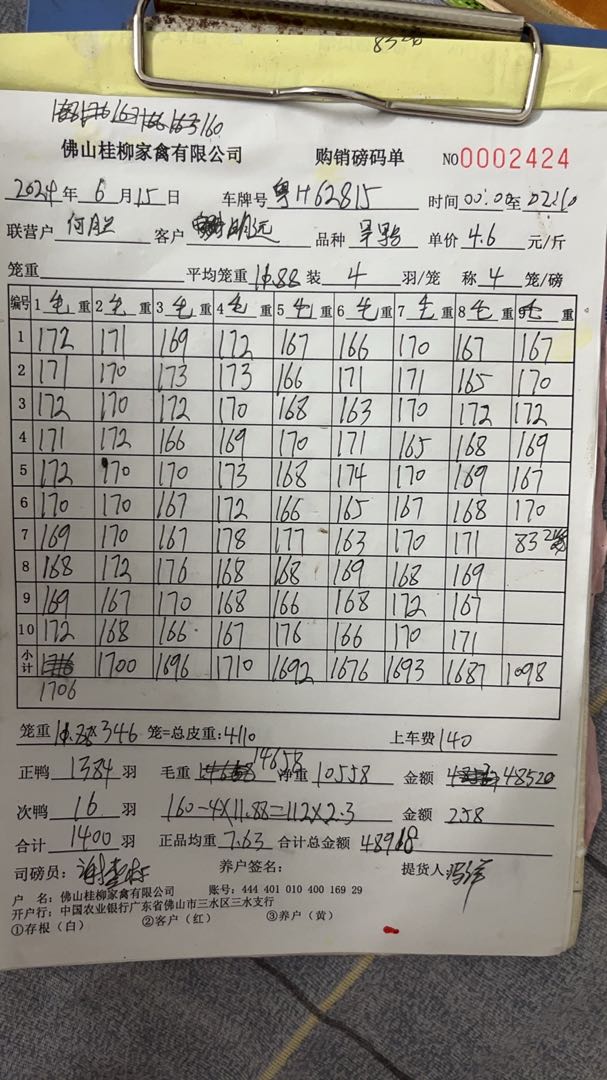 167 160
佛山桂柳家禽有限公司 购销磅码单 NO 0002424
2024年6月15日 车牌号 粤H62815 时间 00:00 至 02:10
联营户 何 客户 明远 品种 单价 4.6 元/斤
笼重 平均笼重 11.88 装 4 羽/笼 称 4 笼/磅
编号 1毛重 2毛重 3毛重 4毛重 5毛重 6毛重 7毛重 8毛重 9毛重
1 172 171 169 172 167 166 170 167 167
2 171 170 173 173 166 171 171 165 170
3 172 170 172 170 168 163 170 172 172
4 171 172 166 169 170 171 165 168 169
5 172 170 170 173 168 174 170 169 167
6 170 170 167 172 166 165 167 168 170
7 169 170 167 178 177 163 170 171 83
8 168 172 176 168 168 169 168 169
9 169 167 170 168 166 168 172 167
10 172 168 166 167 176 166 170 171
小计 1700 1696 1710 1692 1676 1693 1687 1098
1706
笼重 11.88×346 笼=总皮重: 4110 上车费 140
正鸭 1384 羽 毛重 14658 净重 10558 金额 48520
次鸭 16 羽 160-4×11.88=112×2.3 金额 258
合计 1400 羽 正品均重 7.63 合计总金额 48918
司磅员: 养户签名: 提货人:
户 名: 佛山桂柳家禽有限公司 账号: 444 401 010 400 169 29
开户行: 中国农业银行广东省佛山市三水区三水支行
①存根（白） ②客户（红） ③养户（黄）